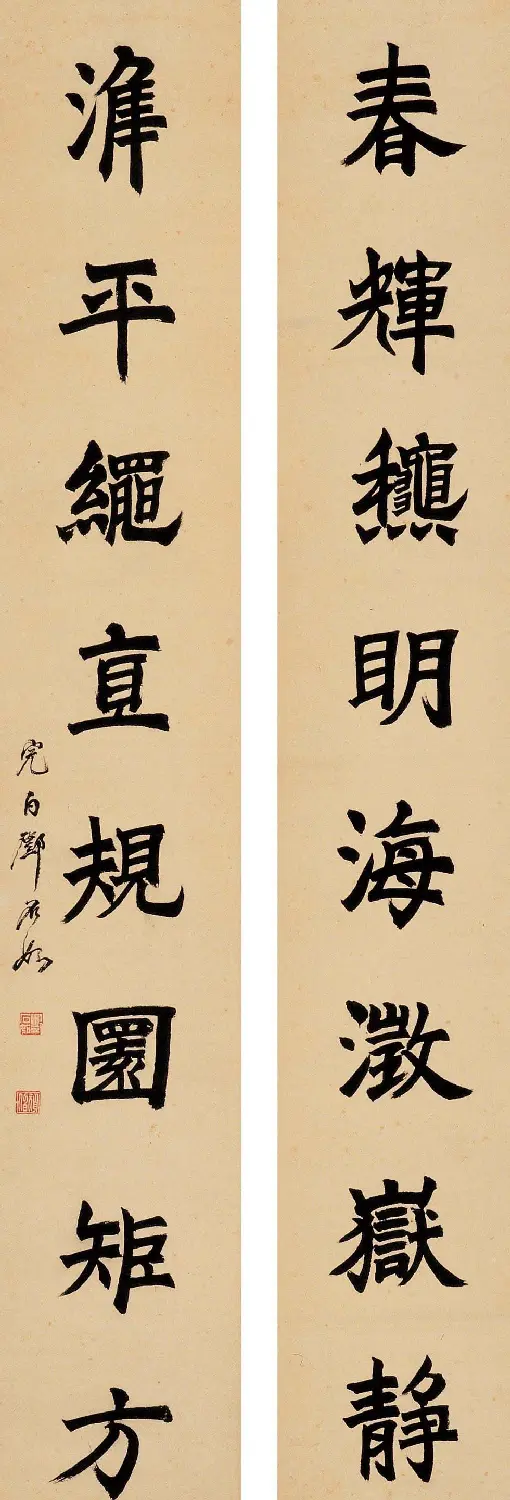 春輝龝明海澂嶽静
準平繩直規圜矩方
完白鄧石如